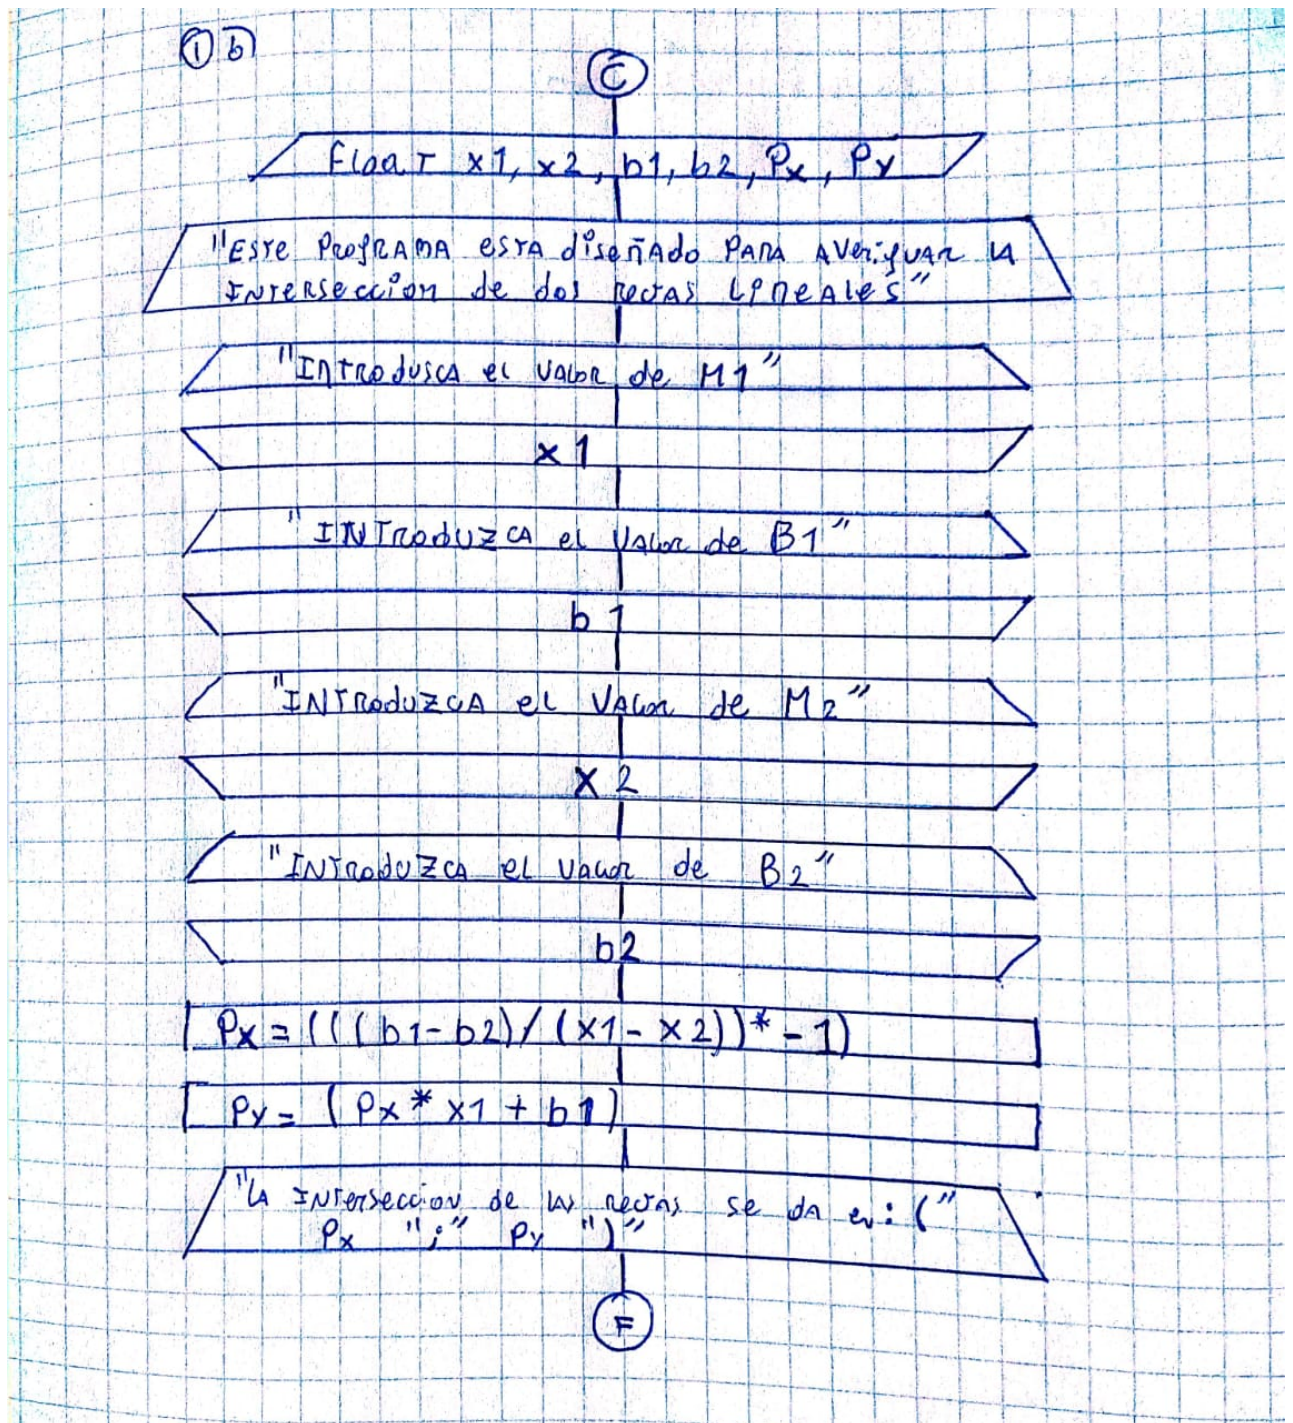 ① b)
C
Float x1, x2, b1, b2, Px, Py
"Este programa esta diseñado para averiguar la
intersección de dos rectas lineales"
"Introdusca el valor de M1"
x1
"Introduzca el valor de B1"
b1
"Introduzca el valor de M2"
x2
"Introduzca el valor de B2"
b2
Px = (((b1-b2)/(x1-x2))*-1)
Py = (Px*x1+b1)
"La intersección de las rectas se da en: ("
Px ";" Py ")"
F